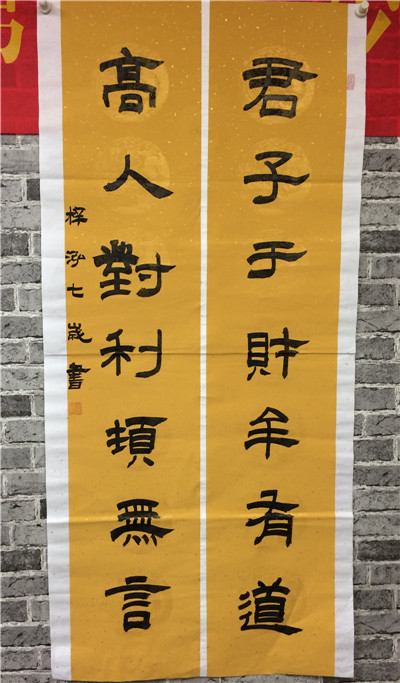 君子于財牟有道
高人對利無言
梓泓七歲書